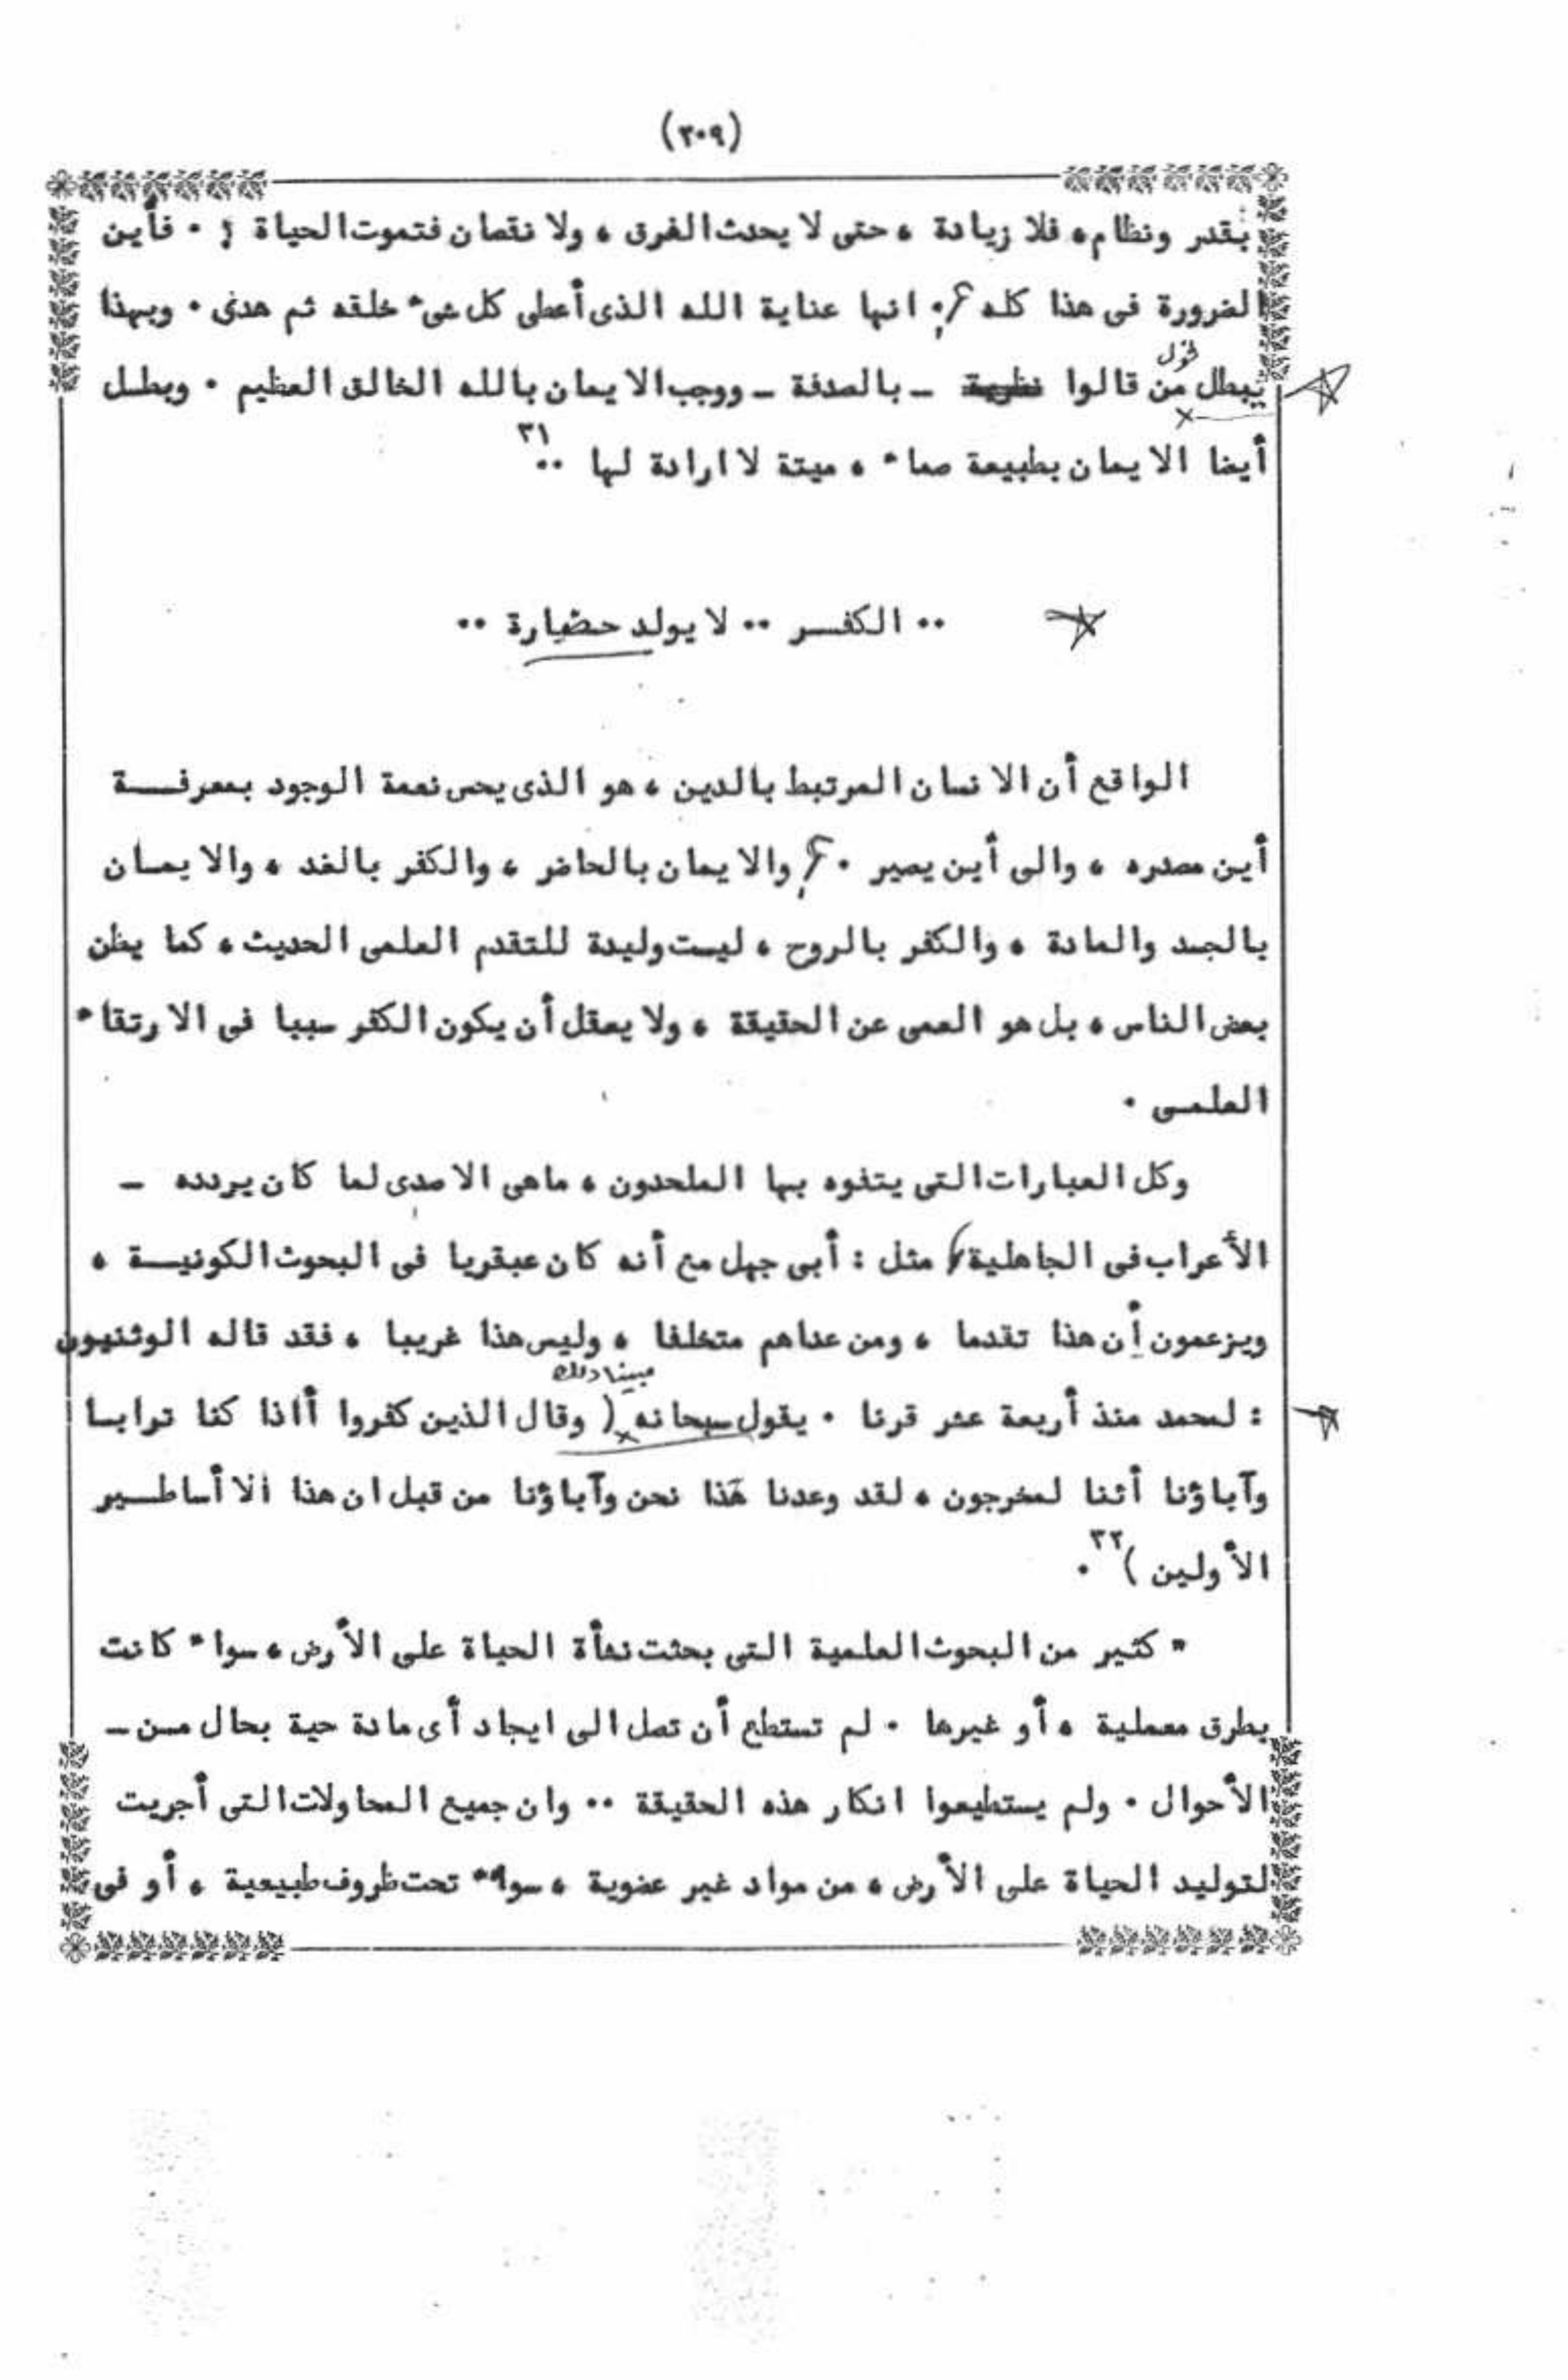 (٢٠٩)
بقدر ونظام، فلا زيادة ، حتى لا يحدث الغرق ، ولا نقصان فتموت الحياة ؟ . فأين
الضرورة فى هذا كله ؟. انها عناية الله الذى أعطى كل شىء خلقه ثم هدى . وبهذا
قول
يبطل من قالوا نظرية ـ بالصدفة ـ ووجب الايمان بالله الخالق العظيم . وبطـل
أيضا الايمان بطبيعة صماء ، ميتة لا ارادة لها ..٣١
.. الكفـر .. لا يولد حضارة ..
الواقع أن الانسان المرتبط بالدين ، هو الذى يحس نعمة الوجود بمعرفـــة
أين مصدره ، والى أين يصير . ؟ والايمان بالحاضر ، والكفر بالغد ، والايمـان
بالجسد والمادة ، والكفر بالروح ، ليست وليدة للتقدم العلمى الحديث ، كما يظن
بعض الناس ، بل هو العمى عن الحقيقة ، ولا يعقل أن يكون الكفر سببا فى الارتقاء
العلمـى .
وكل العبارات التى يتفوه بها الملحدون ، ماهى الا صدى لما كان يردده ـ
الأعراب فى الجاهلية ، مثل : أبى جهل مع أنه كان عبقريا فى البحوث الكونيـــة ،
ويزعمون أن هذا تقدما ، ومن عداهم متخلفا ، وليس هذا غريبا ، فقد قاله الوثنيون
مبينا ذلك
: لمحمد منذ أربعة عشر قرنا . يقول سبحانه ( وقال الذين كفروا أاذا كنا ترابـا
وآباؤنا أئنا لمخرجون ، لقد وعدنا هذا نحن وآباؤنا من قبل ان هذا الا أساطـــير
الأولين )٣٢ .
" كثير من البحوث العلمية التى بحثت نشأة الحياة على الأرض ، سواء كانت
بطرق معملية ، أو غيرها . لم تستطع أن تصل الى ايجاد أى مادة حية بحال مــن ـ
الأحوال . ولم يستطيعوا انكار هذه الحقيقة .. وان جميع المحاولات التى أجريت
لتوليد الحياة على الأرض ، من مواد غير عضوية ، سواء تحت ظروف طبيعية ، أو فى